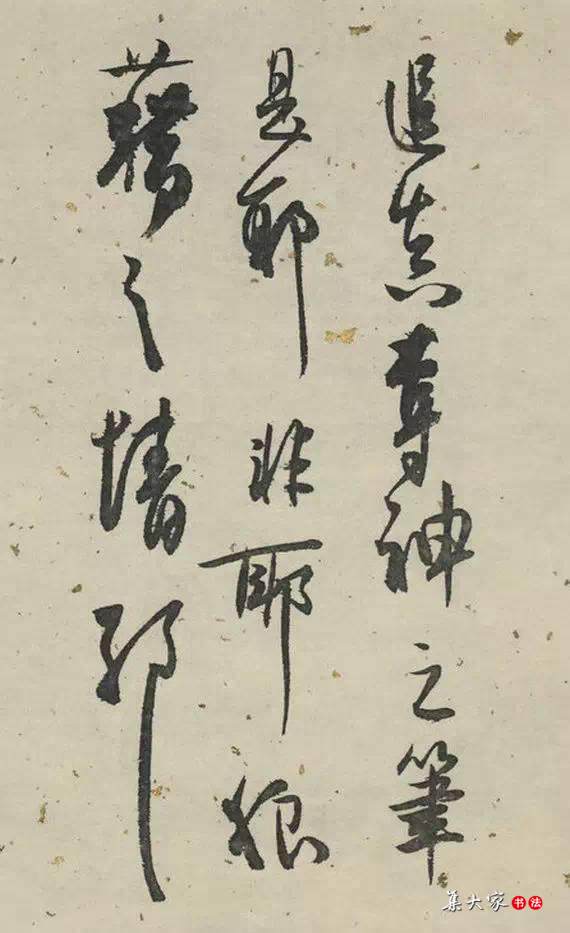 逼真奪神之筆
是耶非耶狼
藉之情
集大家书法